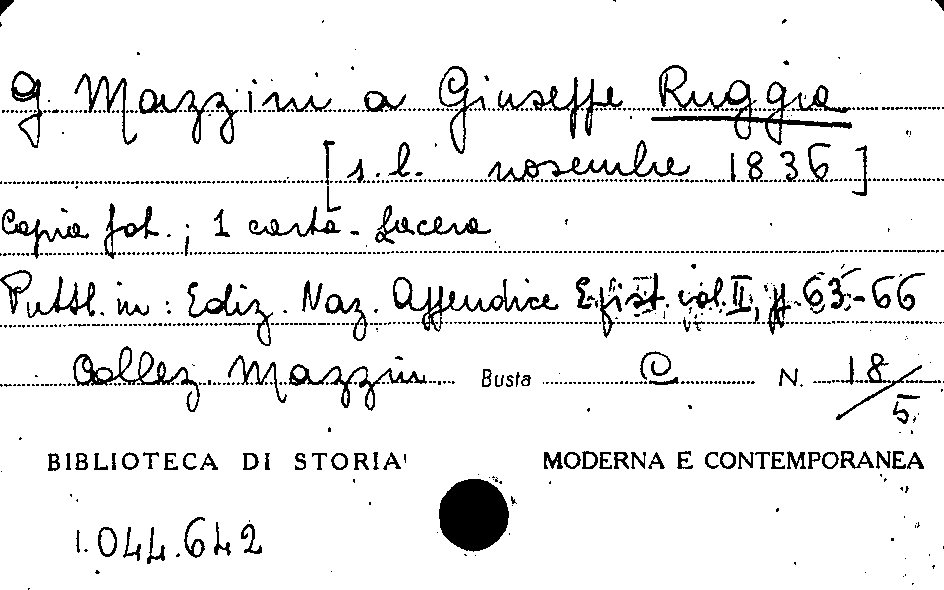 G. Mazzini a Giuseppe Ruggia
[s.l. novembre 1836]
Copia fot.; 1 carta - lacera
Pubbl. in: Ediz. Naz. Appendice Epist. vol. II, pp. 63-66
Collez. Mazzini Busta C N. 18/5
BIBLIOTECA DI STORIA MODERNA E CONTEMPORANEA
1.044.642